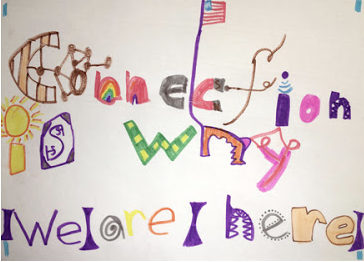 Connection
is why
we are here